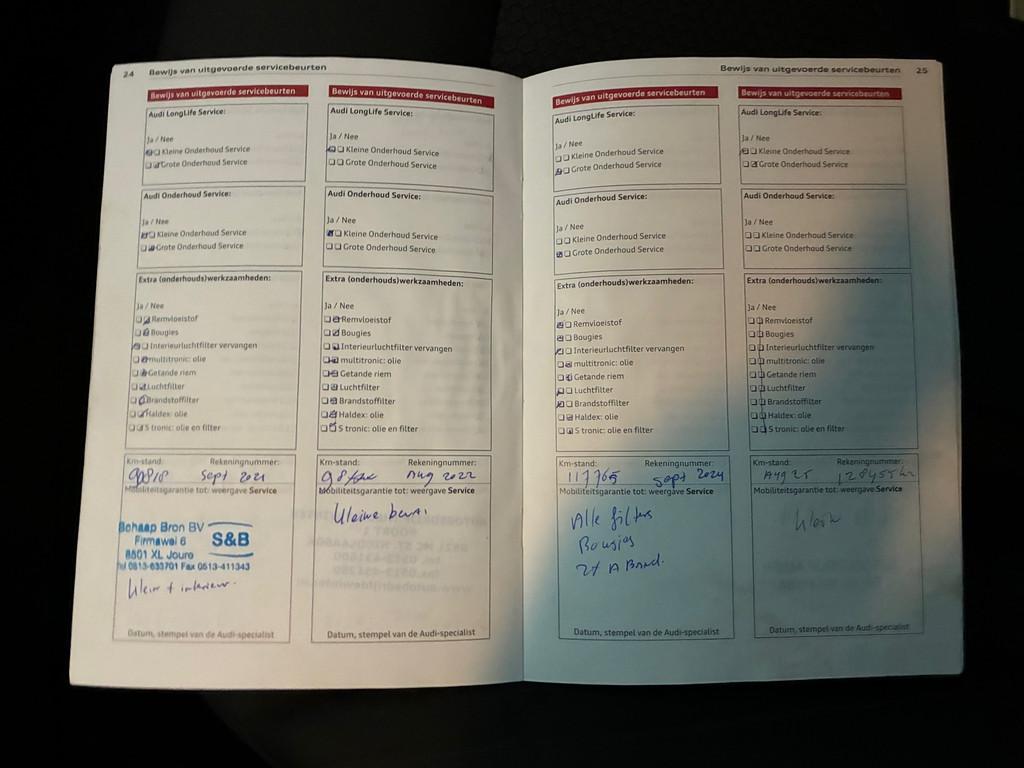 24 Bewijs van uitgevoerde servicebeurten
Bewijs van uitgevoerde servicebeurten
Audi LongLife Service:
Ja / Nee
Kleine Onderhoud Service
Grote Onderhoud Service
Audi Onderhoud Service:
Ja / Nee
Kleine Onderhoud Service
Grote Onderhoud Service
Extra (onderhouds)werkzaamheden:
Ja / Nee
Remvloeistof
Bougies
Interieurluchtfilter vervangen
multitronic: olie
Getande riem
Luchtfilter
Brandstoffilter
Haldex: olie
S tronic: olie en filter
Km-stand: Rekeningnummer:
90818 Sept 2021
Mobiliteitsgarantie tot: weergave Service
Bohaap Bron BV
Firmawei 6 S&B
8501 XL Joure
Tel 0513-633701 Fax 0513-411343
klein + interieur.
Datum, stempel van de Audi-specialist
Bewijs van uitgevoerde servicebeurten
Audi LongLife Service:
Ja / Nee
Kleine Onderhoud Service
Grote Onderhoud Service
Audi Onderhoud Service:
Ja / Nee
Kleine Onderhoud Service
Grote Onderhoud Service
Extra (onderhouds)werkzaamheden:
Ja / Nee
Remvloeistof
Bougies
Interieurluchtfilter vervangen
multitronic: olie
Getande riem
Luchtfilter
Brandstoffilter
Haldex: olie
S tronic: olie en filter
Km-stand: Rekeningnummer:
Aug 2022
Mobiliteitsgarantie tot: weergave Service
Kleine
Datum, stempel van de Audi-specialist
Bewijs van uitgevoerde servicebeurten 25
Bewijs van uitgevoerde servicebeurten
Audi LongLife Service:
Ja / Nee
Kleine Onderhoud Service
Grote Onderhoud Service
Audi Onderhoud Service:
Ja / Nee
Kleine Onderhoud Service
Grote Onderhoud Service
Extra (onderhouds)werkzaamheden:
Ja / Nee
Remvloeistof
Bougies
Interieurluchtfilter vervangen
multitronic: olie
Getande riem
Luchtfilter
Brandstoffilter
Haldex: olie
S tronic: olie en filter
Km-stand: Rekeningnummer:
117765 Sept 2024
Mobiliteitsgarantie tot: weergave Service
Alle filters
Bougies
Datum, stempel van de Audi-specialist
Bewijs van uitgevoerde servicebeurten
Audi LongLife Service:
Ja / Nee
Kleine Onderhoud Service
Grote Onderhoud Service
Audi Onderhoud Service:
Ja / Nee
Kleine Onderhoud Service
Grote Onderhoud Service
Extra (onderhouds)werkzaamheden:
Ja / Nee
Remvloeistof
Bougies
Interieurluchtfilter vervangen
multitronic: olie
Getande riem
Luchtfilter
Brandstoffilter
Haldex: olie
S tronic: olie en filter
Km-stand: Rekeningnummer:
Aug 25
Mobiliteitsgarantie tot: weergave Service
Klein
Datum, stempel van de Audi-specialist